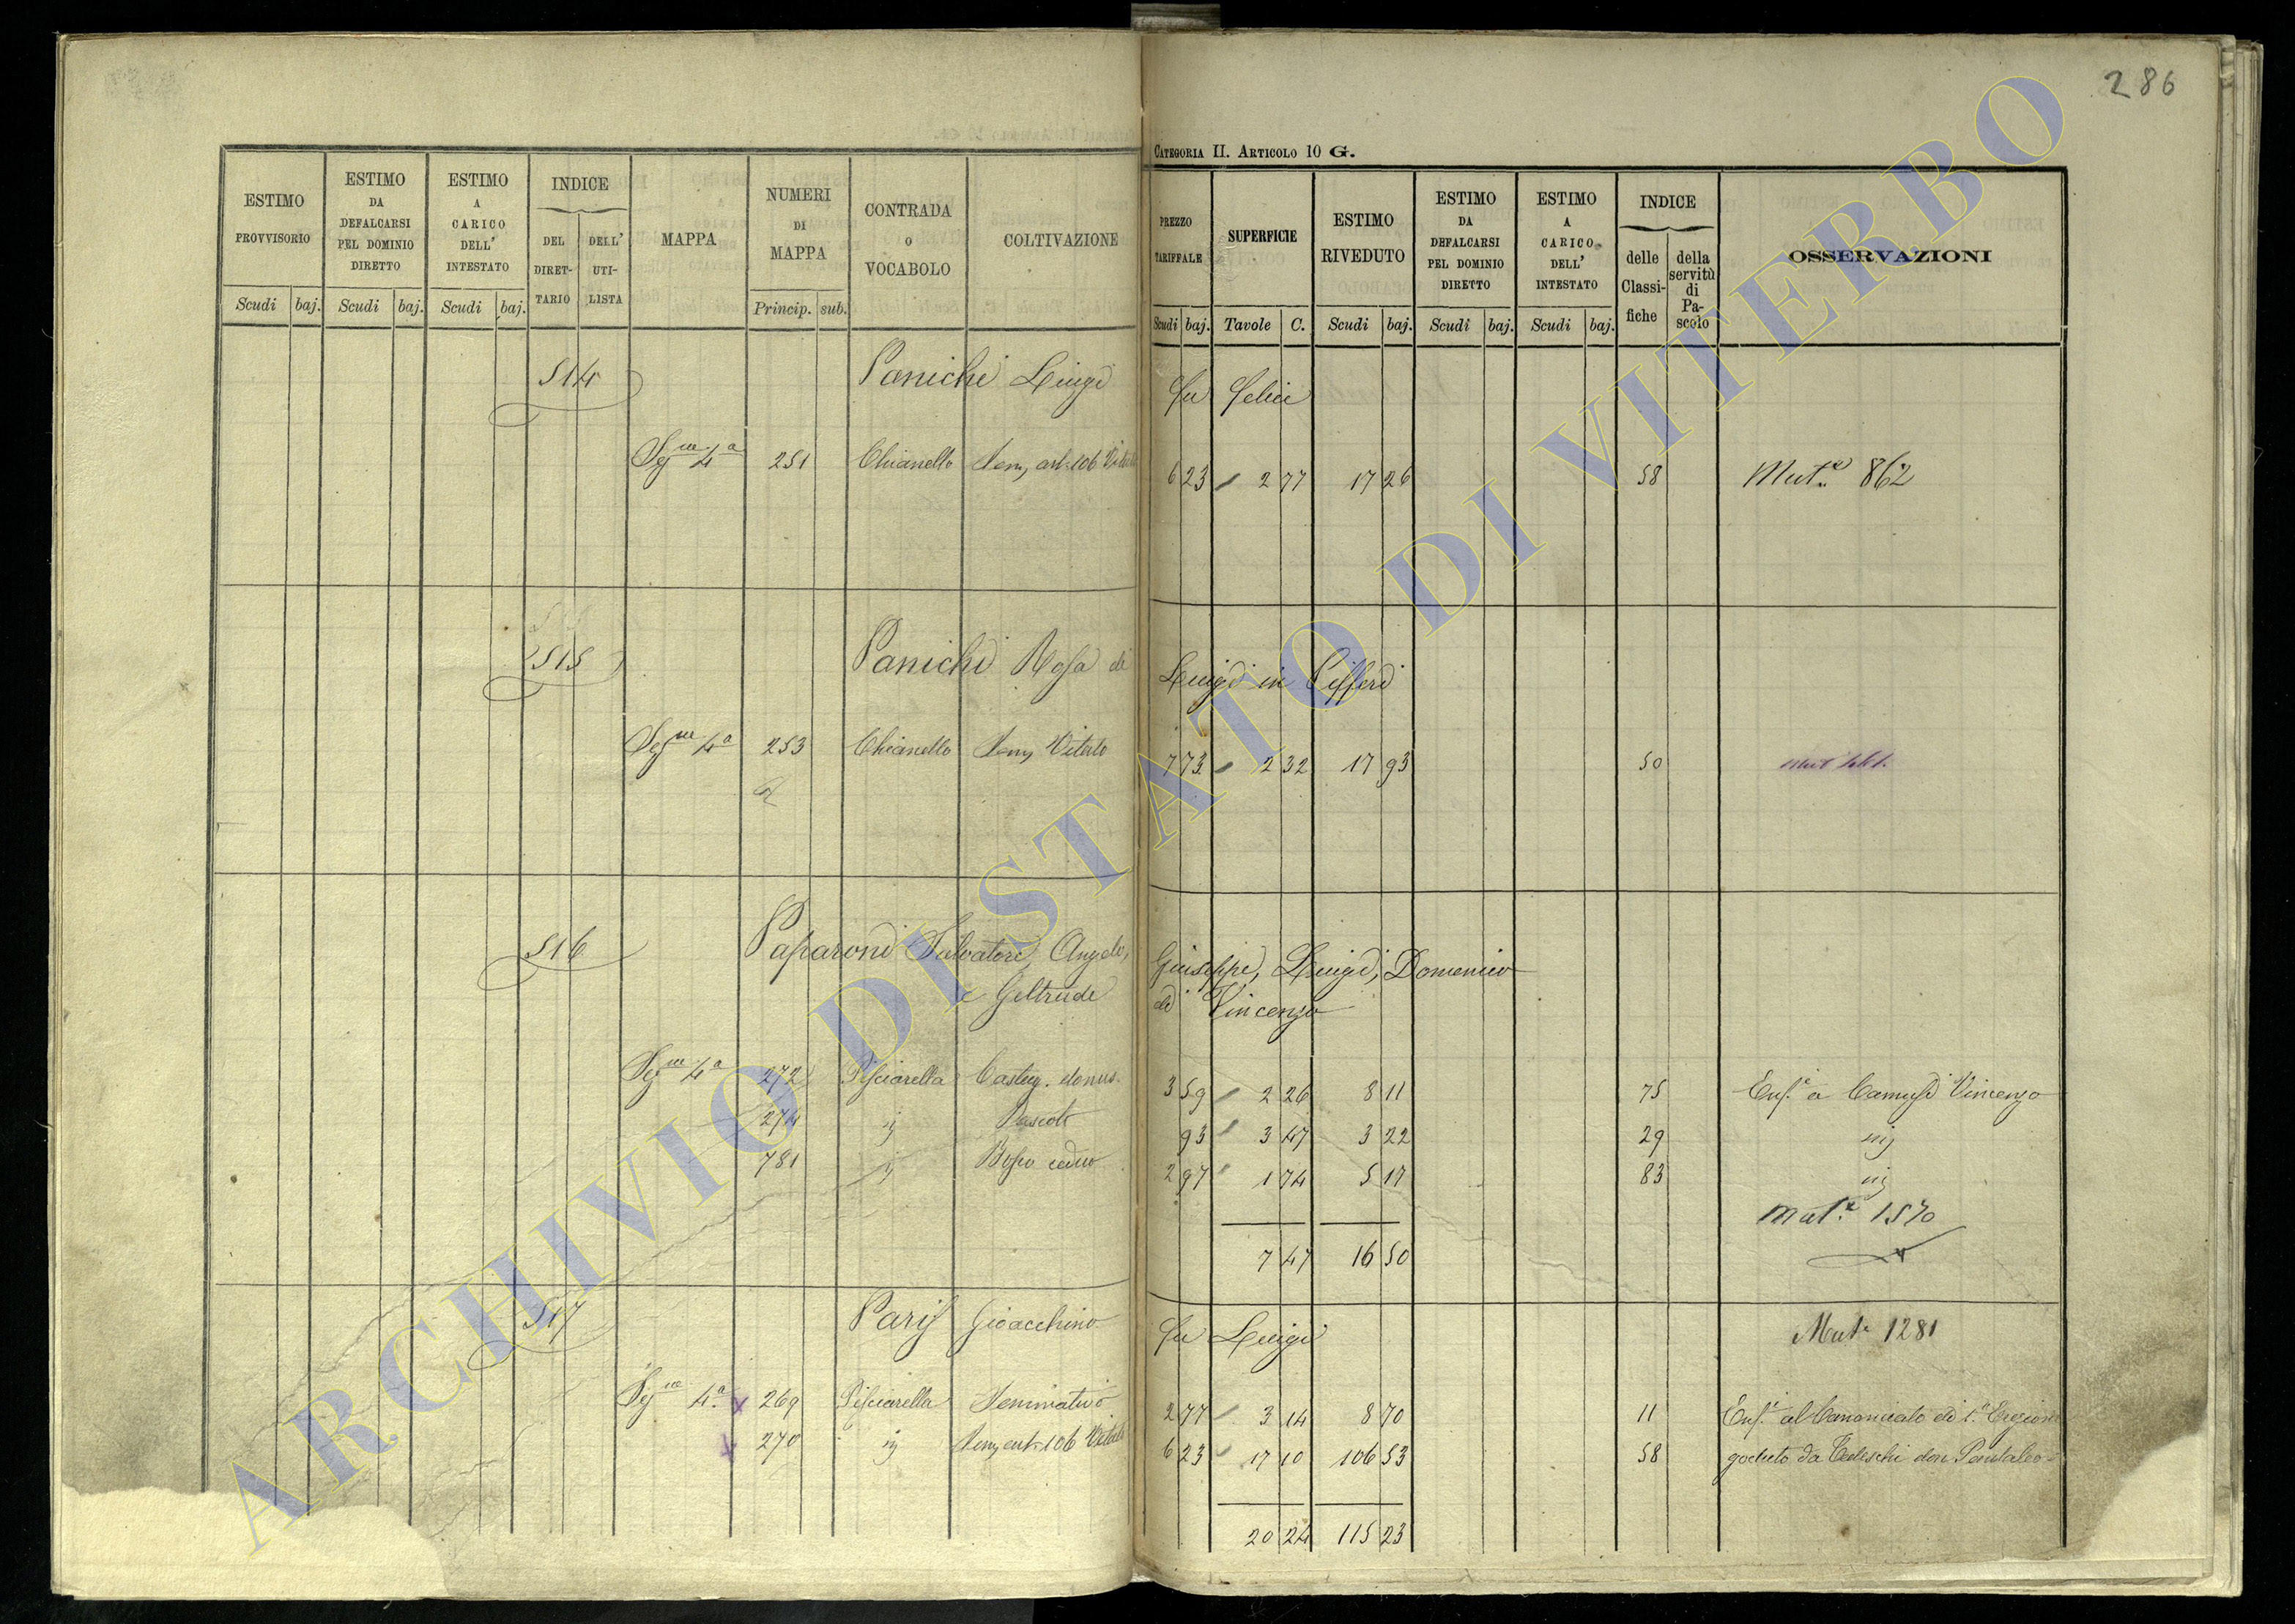 286
CATEGORIA II. ARTICOLO 10 G.
ESTIMO PROVVISORIO Scudi baj.
ESTIMO DA DEFALCARSI PEL DOMINIO DIRETTO Scudi baj.
ESTIMO A CARICO DELL' INTESTATO Scudi baj.
INDICE DEL DIRET-TARIO DELL' UTI-LISTA
MAPPA
NUMERI DI MAPPA Princip. sub.
CONTRADA O VOCABOLO
COLTIVAZIONE
PREZZO TARIFFALE Scudi baj.
SUPERFICIE Tavole C.
ESTIMO RIVEDUTO Scudi baj.
ESTIMO DA DEFALCARSI PEL DOMINIO DIRETTO Scudi baj.
ESTIMO A CARICO DELL' INTESTATO Scudi baj.
INDICE delle Classi-fiche della servitù di Pa-scolo
OSSERVAZIONI
514 Panichi Luigi fu Felice
Segne 4a 251 Chianello Semo art. 106 Vitato 6 23 2 77 17 26 58 Mut.e 862
515 Panichi Rosa di Luigi in Cifferi
Segne 4a 253 Chianello Semo Vitato 7 73 2 32 17 93 50
516 Paparoni Salvatore, Angelo, Giuseppe, Luigi, Domenico
e Geltrude di Vincenzo
Segne 4a 272 Pisciarella Castag. 3 59 2 26 8 11 75 Enf.i a Camusi Vincenzo
274 ij Pascolo 93 3 47 3 22 29 iij
781 ij Bosco ceduo 2 97 1 74 5 17 83 iij
Mut.e 1570
7 47 16 50
517 Paris Gioacchino fu Luigi Mut.e 1281
Segne 4a 269 Pisciarella Seminativo 2 77 3 14 8 70 11 Enf.i al Canonicato di 1.a Erezione
270 ij Semo art. 106 Vitato 6 23 17 10 106 53 58 goduto da Tedeschi don Pantaleo
20 24 115 23
ARCHIVIO DI STATO DI VITERBO